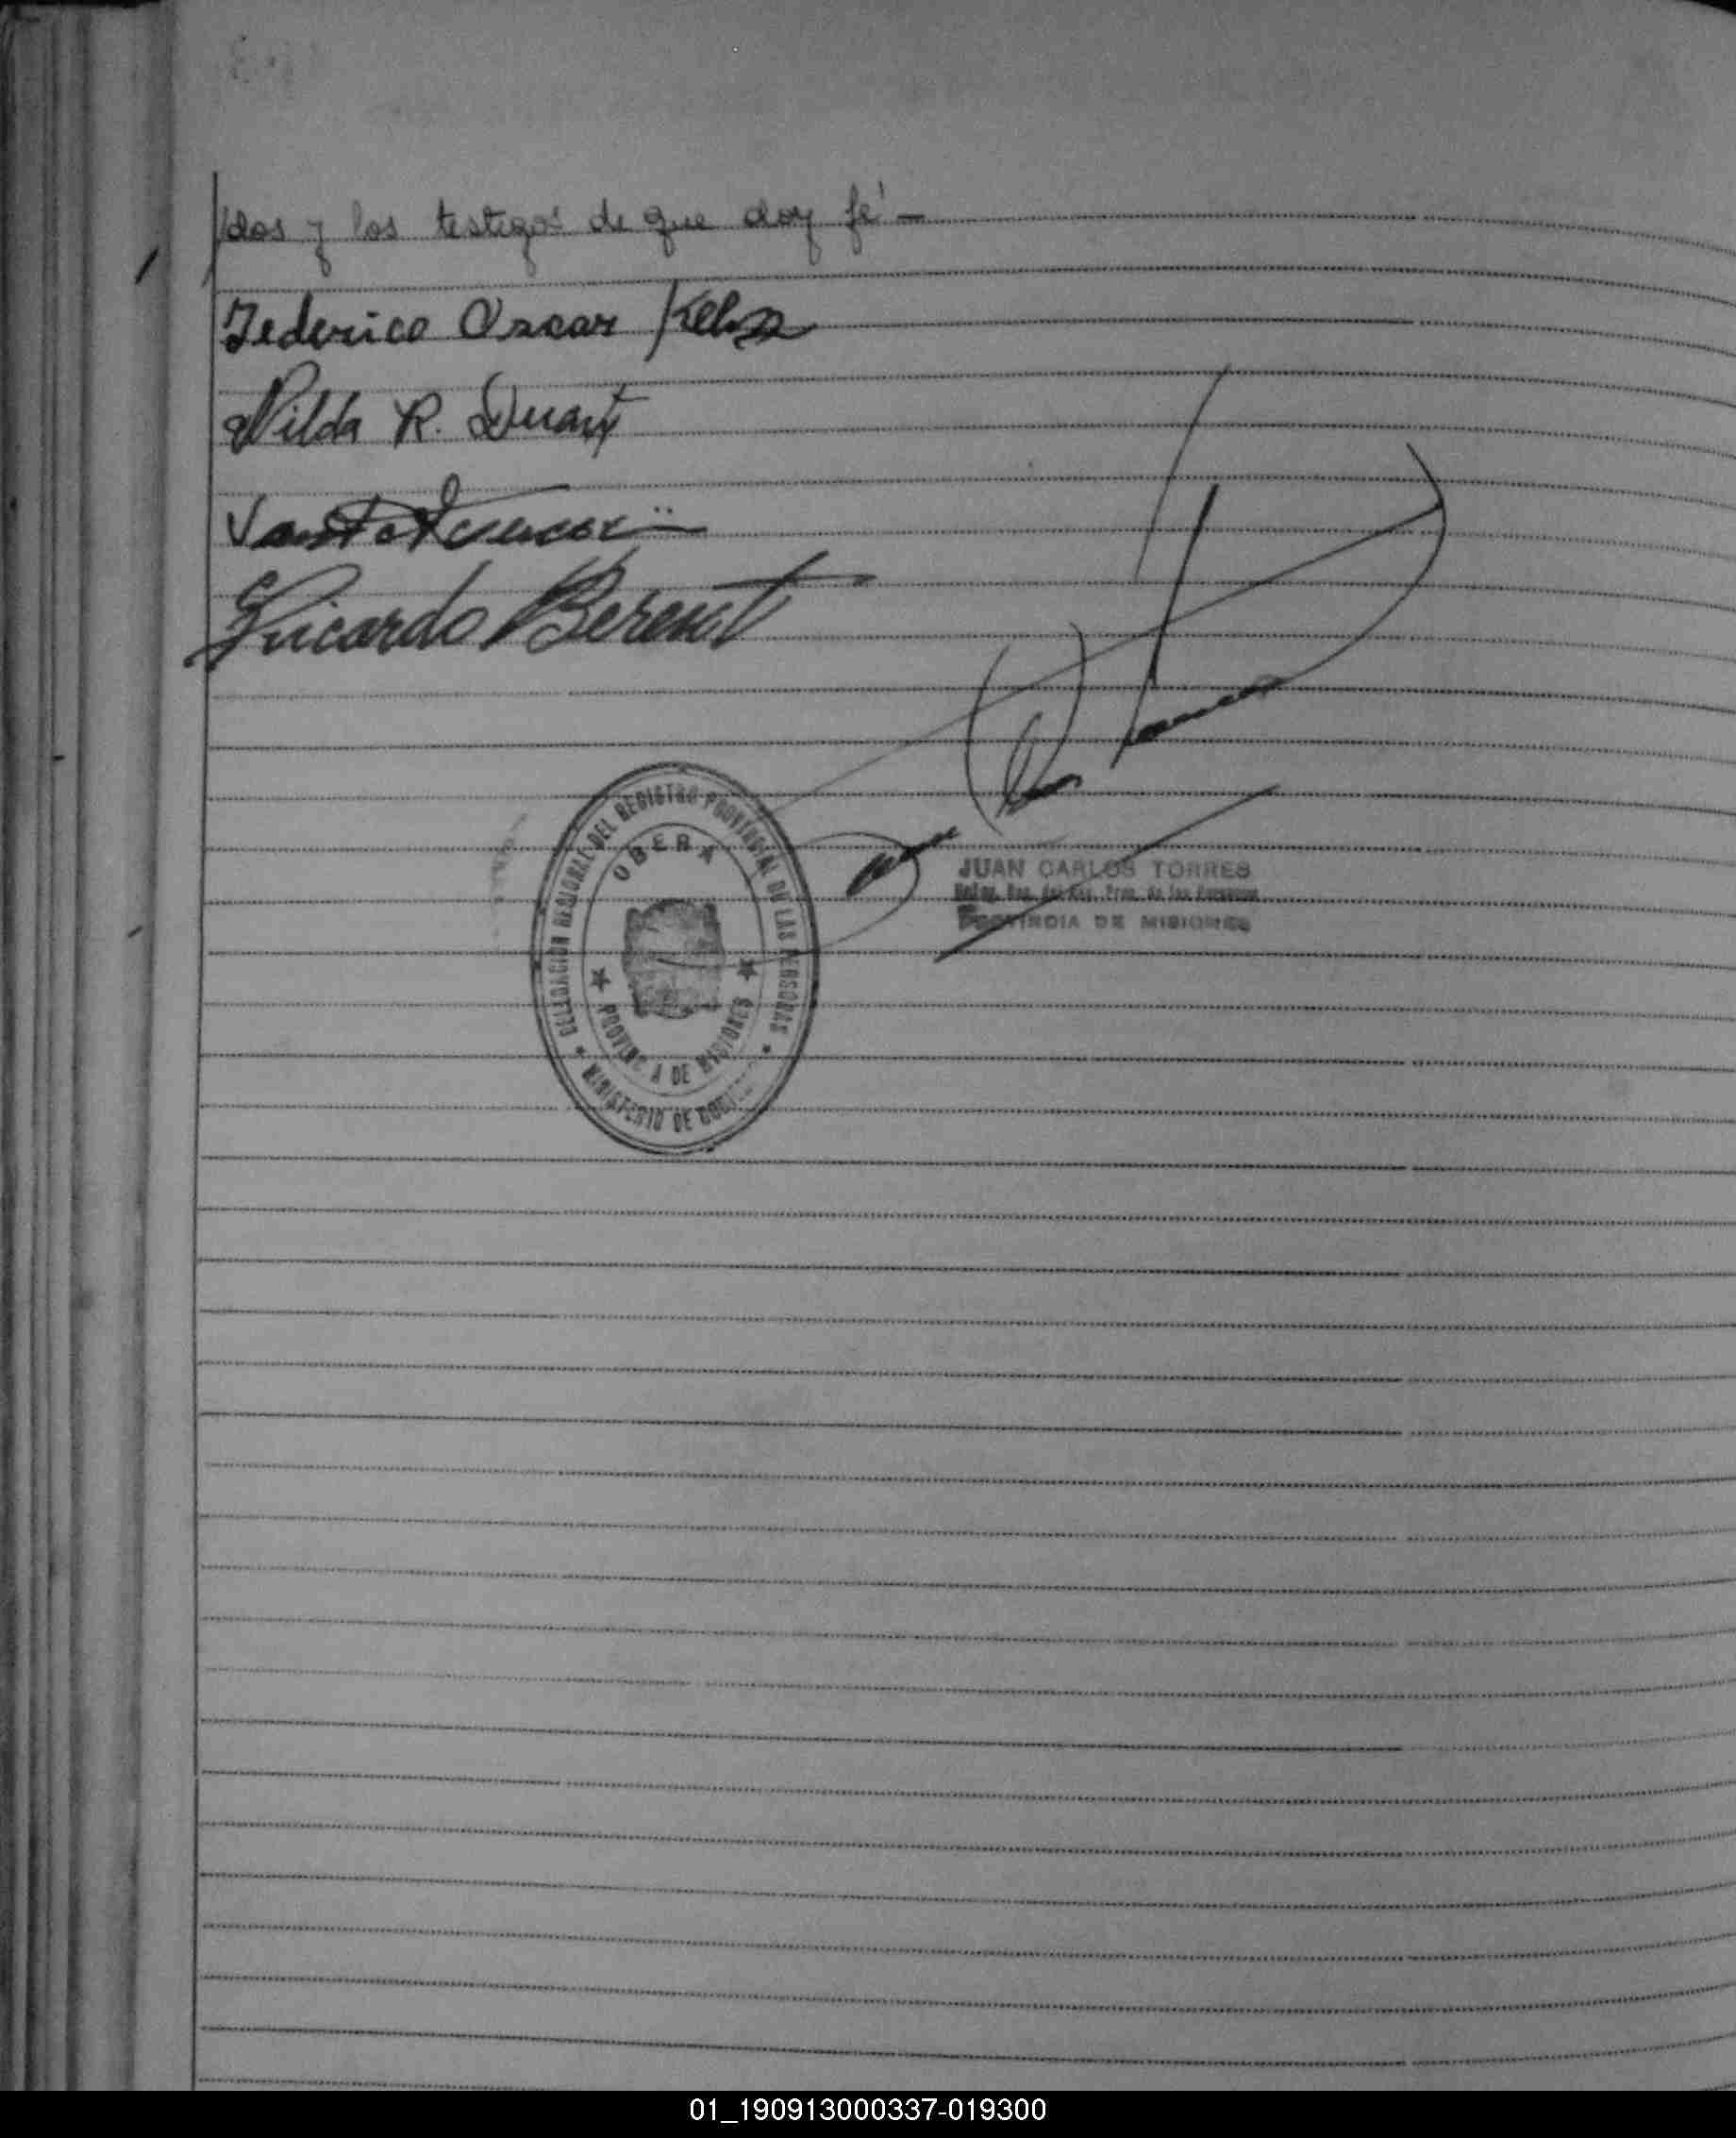 /dos y los testigos de que doy fé -
Federico Oscar
Nilda R. Duarte
Ricardo Berent
OBERA
DELEGACION REGIONAL DEL REGISTRO PROVINCIAL DE LAS PERSONAS
PROVINCIA DE MISIONES
MINISTERIO DE
JUAN CARLOS TORRES
Reg. Prov. de las Personas
PROVINCIA DE MISIONES
01_190913000337-019300